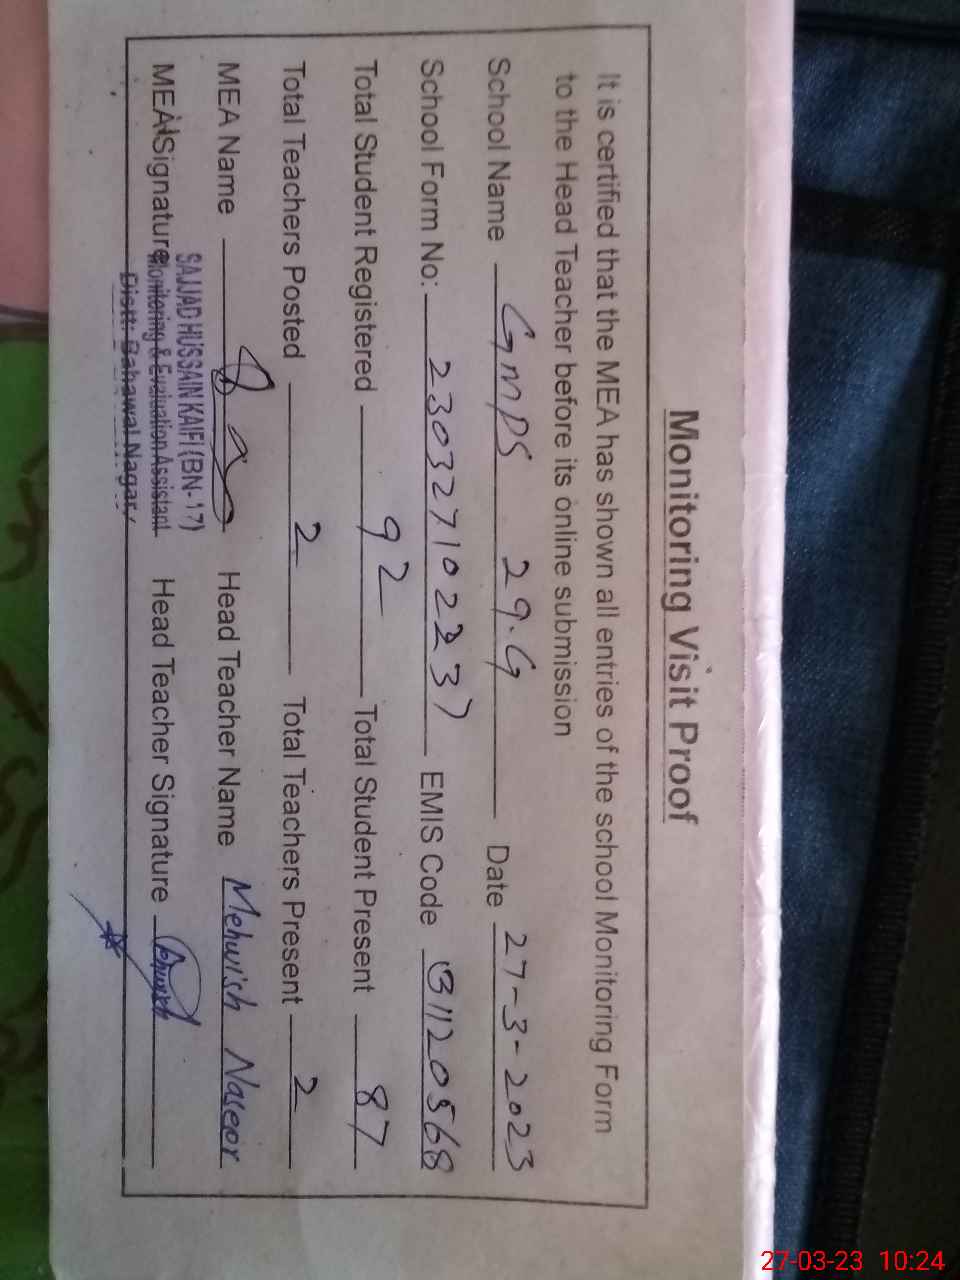 Monitoring Visit Proof
It is certified that the MEA has shown all entries of the school Monitoring Form
to the Head Teacher before its online submission
School Name GMPS 29.G Date 27-3-2023
School Form No: 2303271022 37 EMIS Code 31120568
Total Student Registered 92 Total Student Present 87
Total Teachers Posted 2 Total Teachers Present 2
MEA Name Head Teacher Name Mehwish Naseer
SAJJAD HUSSAIN KAIFI (BN-17)
MEA Signature Head Teacher Signature
Monitoring & Evaluation Assistant
Distt: Bahawal Nagar
27-03-23 10:24